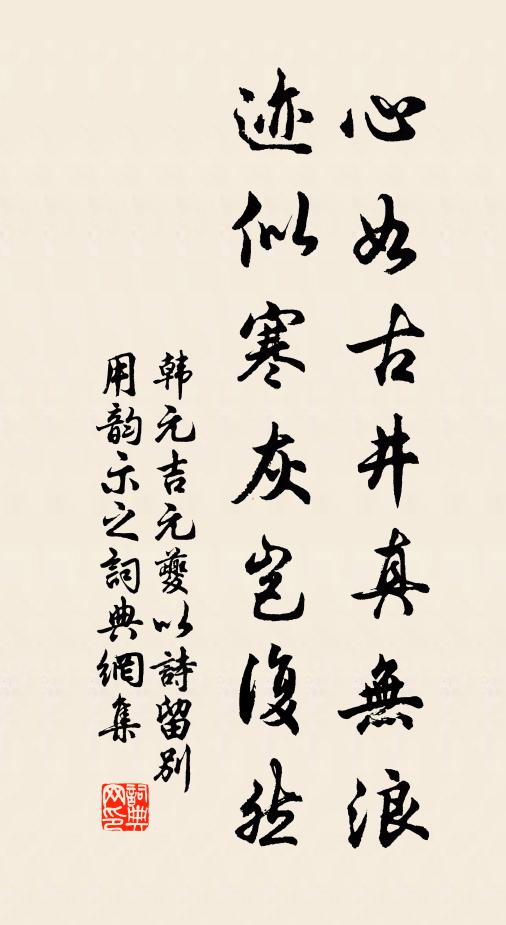 心如古井真無浪
迹似寒灰岂復然
韩元吉元夔以詩留别
用韵示之詞典網集
詞典网印